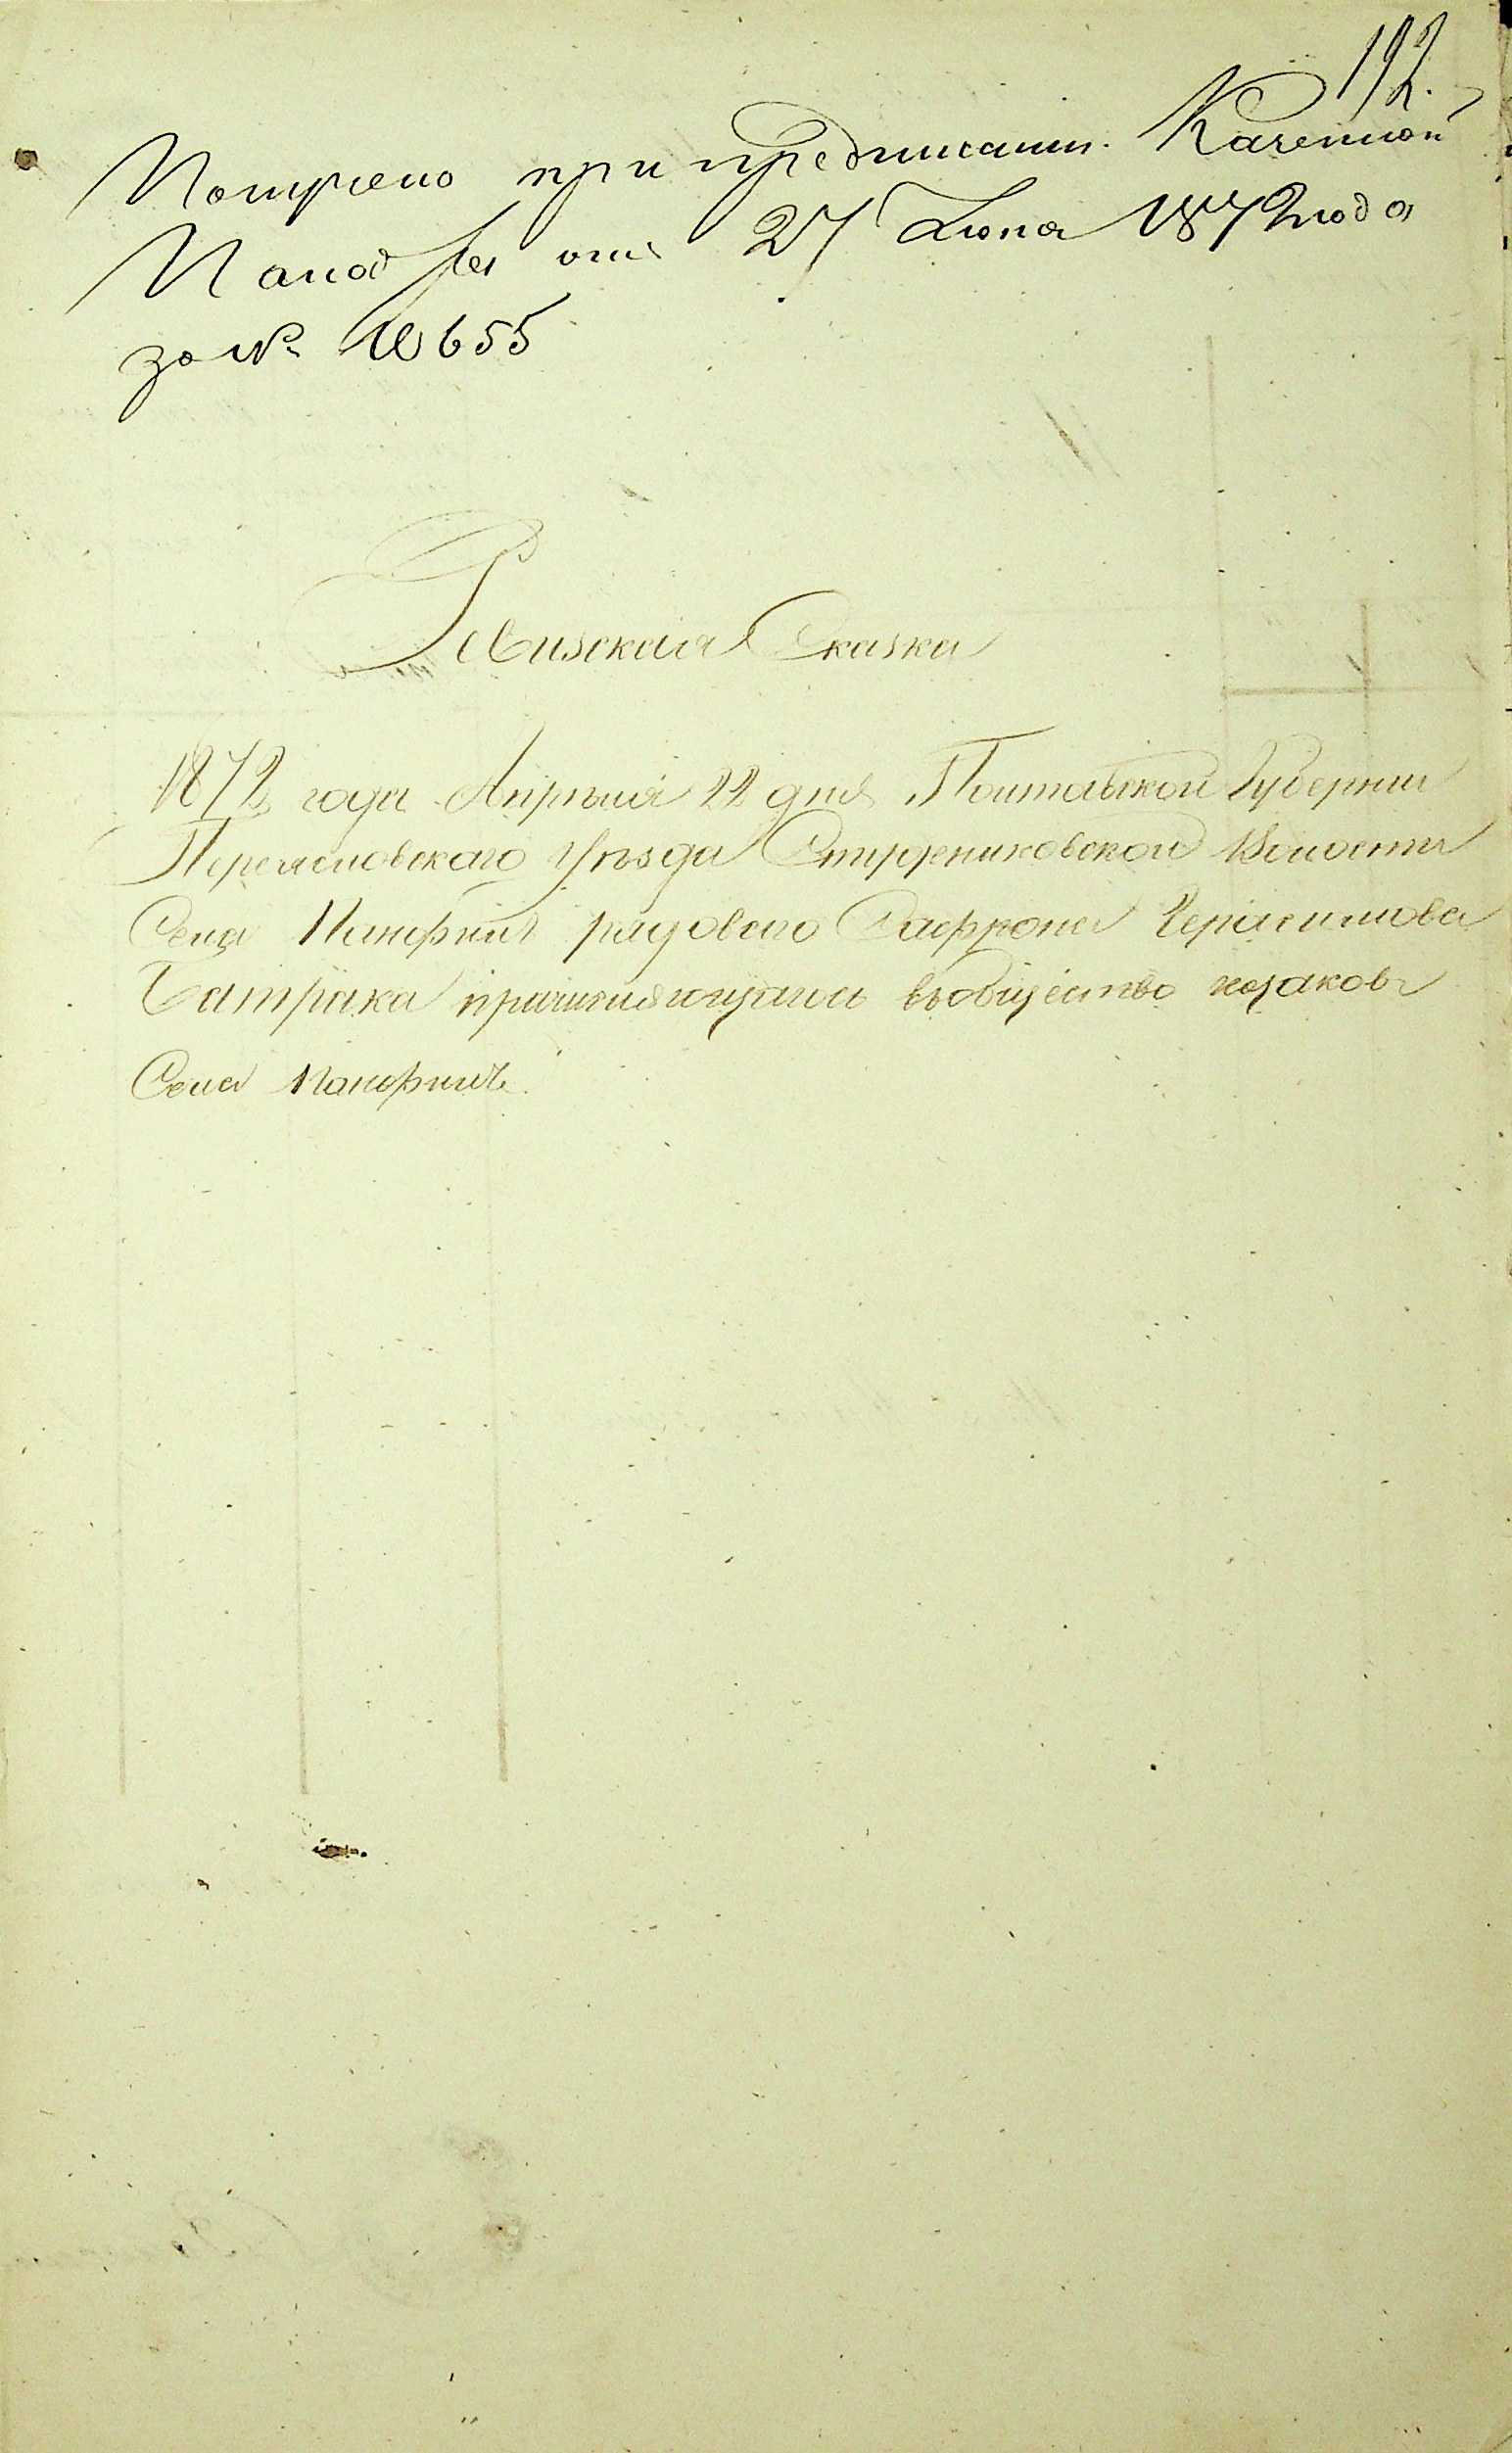 192.
Получено при предписании Казенной
Палаты отъ 27 Июня 1872 года
за № 10655
Ревизская Сказка
1872 года Апрѣля 22 дня Полтавской Губернии
Переяславского Уѣзда Строковской Волости
Села Панфилъ рядового Сафрона Герасимова
Батрака причисляющагося въ общество козаковъ
Села Панфилъ.